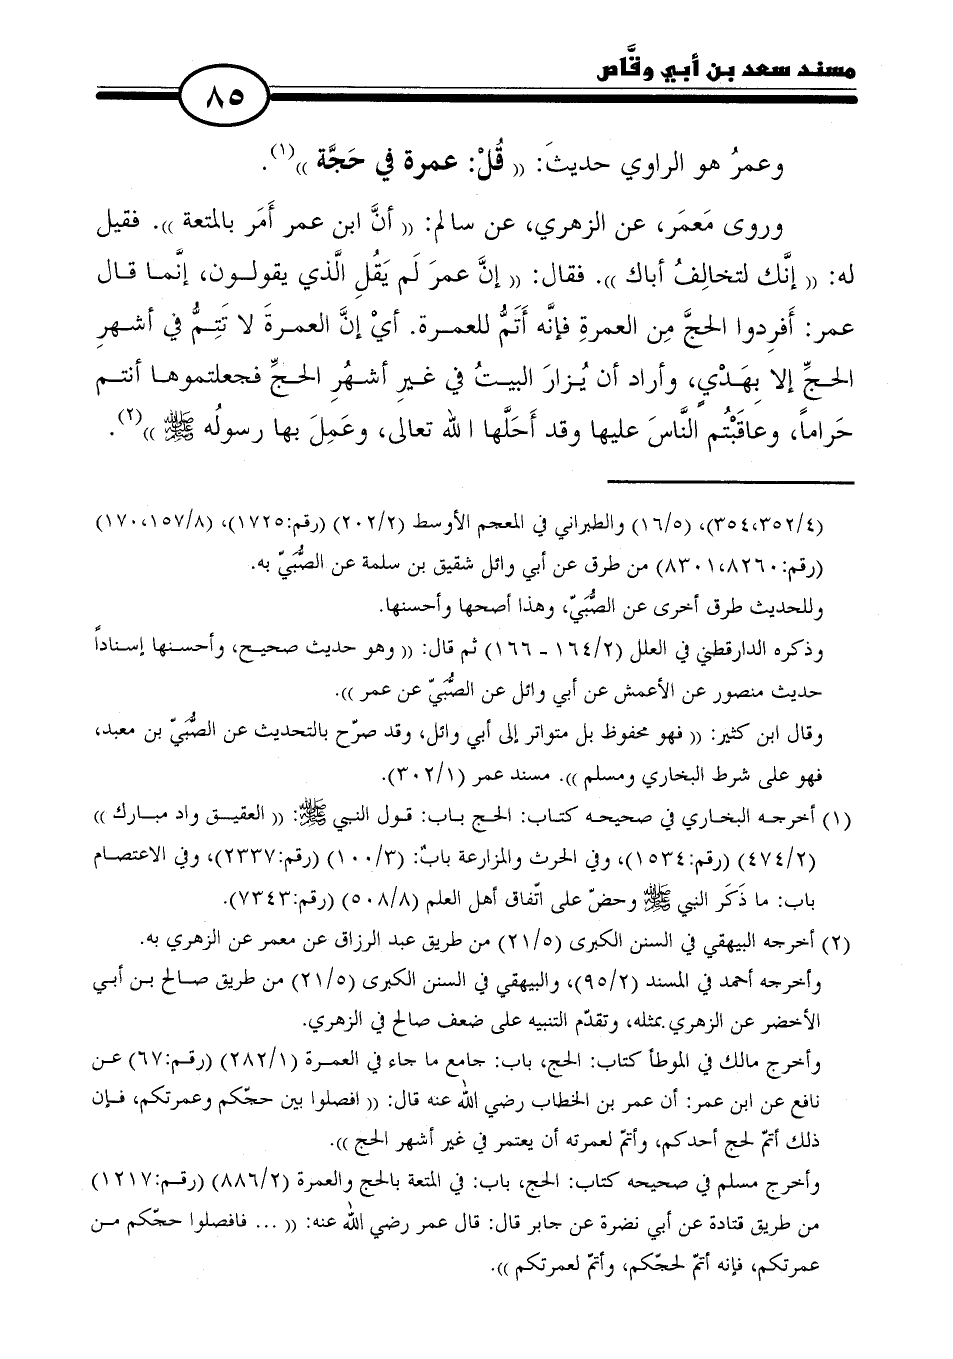 مسند سعد بن أبي وقَّاص
٨٥
وعمرُ هو الراوي حديثَ: (( قُلْ: عمرة في حَجَّة ))(١).
وروى مَعمَر، عن الزهري، عن سالم: (( أنَّ ابن عمر أَمَر بالمتعة )). فقيل
له: (( إنَّك لتخالِفُ أباك )). فقال: (( إنَّ عمرَ لَم يَقُلِ الَّذي يقولون، إنَّما قال
عمر: أَفرِدوا الحجَّ مِن العمرةِ فإنَّه أَتَمُّ للعمرة. أيْ إنَّ العمرةَ لا تَتِمُّ في أشهرِ
الحجِّ إلا بِهَدْيٍ، وأراد أن يُزارَ البيتُ في غيرِ أشهُرِ الحجِّ فجعلتموها أنتم
حَراماً، وعاقَبْتُم النَّاسَ عليها وقد أَحَلَّها الله تعالى، وعَمِلَ بها رسولُه ﷺ ))(٢).
(٣٥٤،٣٥٢/٤)، (١٦/٥) والطبراني في المعجم الأوسط (٢٠٢/٢) (رقم:١٧٢٥)، (١٧٠،١٥٧/٨)
(رقم:٨٣٠١،٨٢٦٠) من طرق عن أبي وائل شقيق بن سلمة عن الصُّبَيّ به.
وللحديث طرق أخرى عن الصُّبَيّ، وهذا أصحها وأحسنها.
وذكره الدارقطني في العلل (١٦٤/٢ - ١٦٦) ثم قال: (( وهو حديث صحيح، وأحسنها إسناداً
حديث منصور عن الأعمش عن أبي وائل عن الصُّبَيّ عن عمر )).
وقال ابن كثير: (( فهو محفوظ بل متواتر إلى أبي وائل، وقد صرّح بالتحديث عن الصُّبَيّ بن معبد،
فهو على شرط البخاري ومسلم )). مسند عمر (٣٠٢/١).
(١) أخرجه البخاري في صحيحه كتاب: الحج باب: قول النبي ﷺ: (( العقيق واد مبارك ))
(٤٧٤/٢) (رقم:١٥٣٤)، وفي الحرث والمزارعة بابٌ: (١٠٠/٣) (رقم:٢٣٣٧)، وفي الاعتصام
باب: ما ذَكَر النبي ﷺ وحضّ على اتّفاق أهل العلم (٥٠٨/٨) (رقم:٧٣٤٣).
(٢) أخرجه البيهقي في السنن الكبرى (٢١/٥) من طريق عبد الرزاق عن معمر عن الزهري به.
وأخرجه أحمد في المسند (٩٥/٢)، والبيهقي في السنن الكبرى (٢١/٥) من طريق صالح بن أبي
الأخضر عن الزهري بمثله، وتقدّم التنبيه على ضعف صالح في الزهري.
وأخرج مالك في الموطأ كتاب: الحج، باب: جامع ما جاء في العمرة (٢٨٢/١) (رقم:٦٧) عن
نافع عن ابن عمر: أن عمر بن الخطاب رضي الله عنه قال: (( افصلوا بين حجّكم وعمرتكم، فإن
ذلك أتمّ لحج أحدكم، وأتمّ لعمرته أن يعتمر في غير أشهر الحج )).
وأخرج مسلم في صحيحه كتاب: الحج، باب: في المتعة بالحج والعمرة (٨٨٦/٢) (رقم:١٢١٧)
من طريق قتادة عن أبي نضرة عن جابر قال: قال عمر رضي الله عنه: (( ... فافصلوا حجّكم من
عمرتكم، فإنه أتمّ لحجّكم، وأتمّ لعمرتكم )).